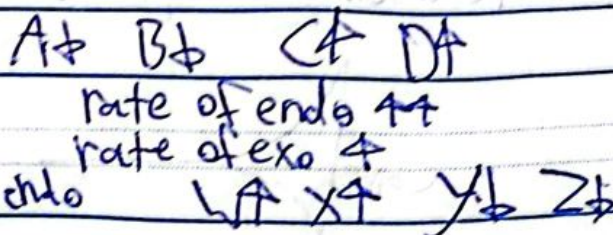 A↓ B↓ C↑ D↑
rate of endo ↑↑
rate of exo ↑
endo W↑ X↑ Y↓ Z↓